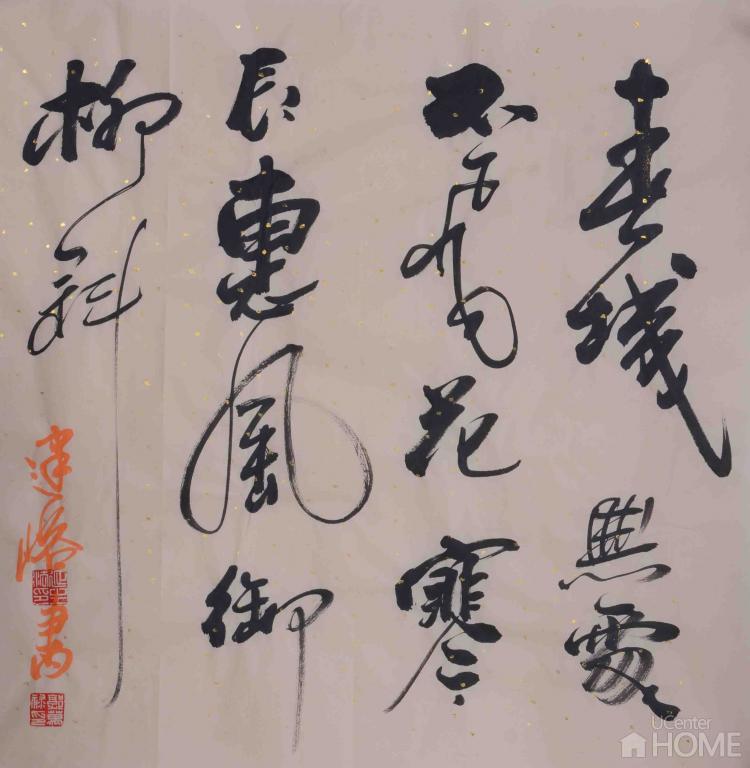 春城無處
不飛花寒
食惠風御
柳斜
UCenter
HOME